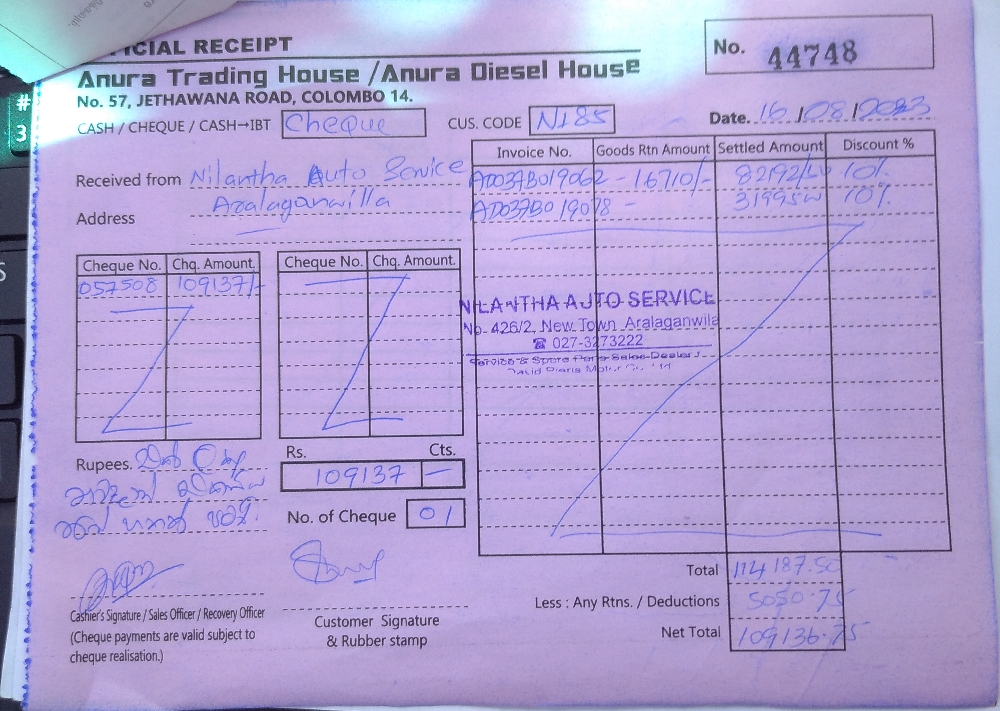 ICIAL RECEIPT
No. 44748
Anura Trading House /Anura Diesel House
No. 57, JETHAWANA ROAD, COLOMBO 14.
CASH / CHEQUE / CASH→IBT Cheque CUS. CODE N185 Date. 16/08/2023
Invoice No. Goods Rtn Amount Settled Amount Discount %
Received from Nilantha Auto Service
AD037B019062 - 16710/- 82192/50 10%
Address Aralaganwilla
AD037B019078 - 31995 10%
Cheque No. Chq. Amount. Cheque No. Chq. Amount.
057508 109137/-
NILANTHA AUTO SERVICE
No. 426/2, New Town Aralaganwila
☎ 027-3273222
Service & Spare Parts Sales Dealer
David Pieris Motor Co. Ltd
Rupees.
Rs. Cts.
109137 —
No. of Cheque 01
Total 114 187.50
Less : Any Rtns. / Deductions 5050.75
Net Total 109136.75
Cashier's Signature / Sales Officer / Recovery Officer
(Cheque payments are valid subject to
cheque realisation.)
Customer Signature
& Rubber stamp